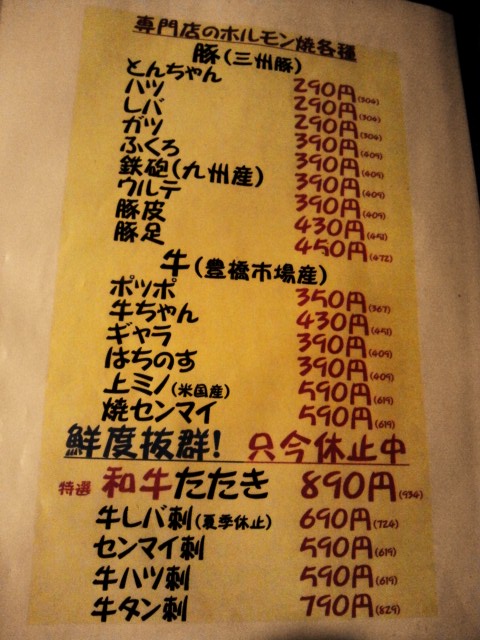 専門店のホルモン焼各種
豚(三州豚)
とんちゃん 290円(304)
ハツ 290円(304)
レバ 290円(304)
ガツ 390円(409)
ふくろ 390円(409)
鉄砲(九州産) 390円(409)
ウルテ 390円(409)
豚皮 430円(451)
豚足 450円(472)
牛(豊橋市場産)
ポッポ 350円(367)
牛ちゃん 430円(451)
ギャラ 390円(409)
はちのす 390円(409)
上ミノ(米国産) 590円(619)
焼センマイ 590円(619)
鮮度抜群! 只今休止中
特選 和牛たたき 890円(934)
牛レバ刺(夏季休止) 690円(724)
センマイ刺 590円(619)
牛ハツ刺 590円(619)
牛タン刺 790円(829)